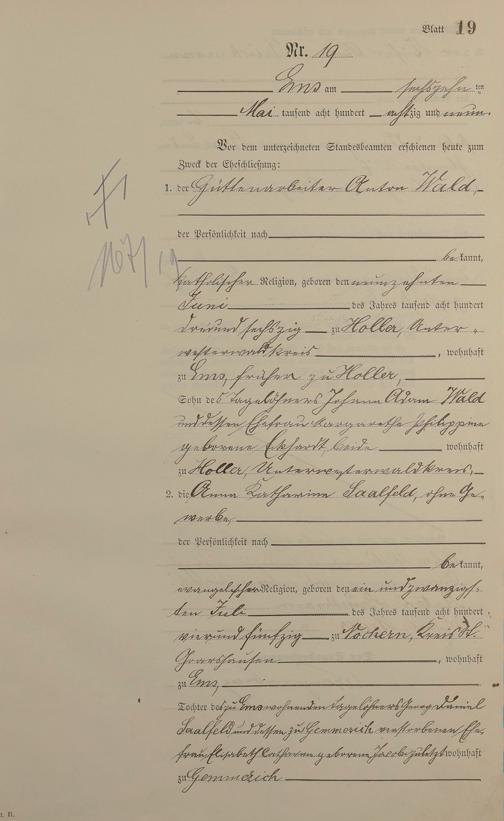 Blatt 19
Nr. 19
Ems am sechszehn ten
Mai tausend acht hundert achtzig und neun.
Vor dem unterzeichneten Standesbeamten erschienen heute zum
Zweck der Eheschließung:
1. der Hüttenarbeiter Anton Wald,
der Persönlichkeit nach
bekannt,
katholischer Religion, geboren den neunzehnten
Juni des Jahres tausend acht hundert
dreiundsechszig zu Holler, Unter-
westerwaldkreis, wohnhaft
zu Ems, früher zu Holler,
Sohn des Tagelöhners Johann Adam Wald
und dessen Ehefrau Margarethe Philippine
geborene Eckhardt, beide wohnhaft
zu Holler, Unterwesterwaldkreis,
2. die Anna Katharine Saalfeld, ohne Ge-
werbe,
der Persönlichkeit nach
bekannt,
evangelischer Religion, geboren den ein und zwanzigs-
ten Juli des Jahres tausend acht hundert
vierundfünfzig zu Nochern, Kreis St.
Goarshausen, wohnhaft
zu Ems,
Tochter des zu Ems wohnenden Tagelöhners Georg Daniel
Saalfeld und dessen zu Gemmerich verstorbenen Ehe-
frau Elisabeth Catharine geborene Jacob zuletzt wohnhaft
zu Gemmerich